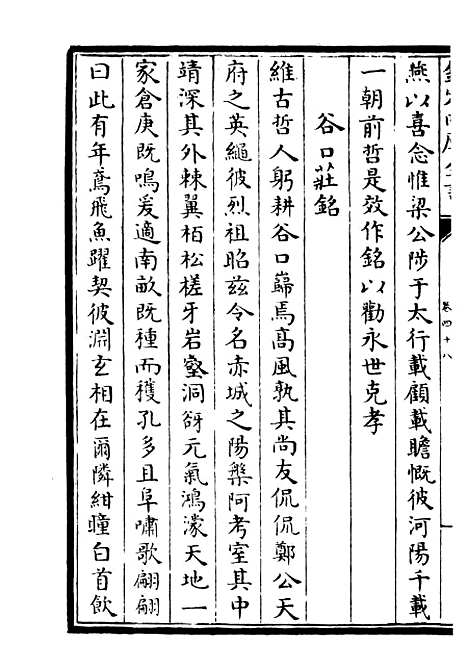 卷四十八
燕以喜念惟梁公陟于太行載顧載瞻慨彼河陽千載
一朝前哲是效作銘以勸永世克孝
谷口莊銘
維古哲人躬耕谷口巋焉高風孰其尚友侃侃鄭公天
府之英繩彼烈祖昭兹令名赤城之陽槃阿考室其中
靖深其外棘翼栢松槎牙岩壑洞谺元氣鴻濛天地一
家倉庚既鳴爰適南畝既種而穫孔多且阜嘯歌翩翩
曰此有年鳶飛魚躍契彼淵玄相在爾隣紺瞳白首飲